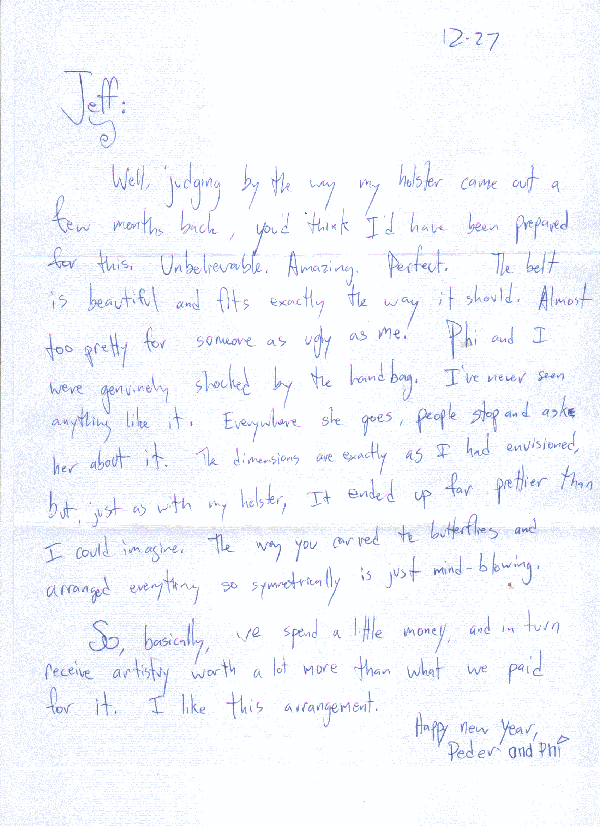 12-27
Jeff:
Well, judging by the way my holster came out a
few months back, you'd think I'd have been prepared
for this. Unbelievable. Amazing. Perfect. The belt
is beautiful and fits exactly the way it should. Almost
too pretty for someone as ugly as me! Phi and I
were genuinely shocked by the handbag. I've never seen
anything like it. Everywhere she goes, people stop and ask
her about it. The dimensions are exactly as I had envisioned,
but, just as with my holster, It ended up far prettier than
I could imagine. The way you carved the butterflies and
arranged everything so symmetrically is just mind-blowing.
So, basically, we spend a little money, and in turn
receive artistry worth a lot more than what we paid
for it. I like this arrangement.
Happy new year,
Peder and Phi